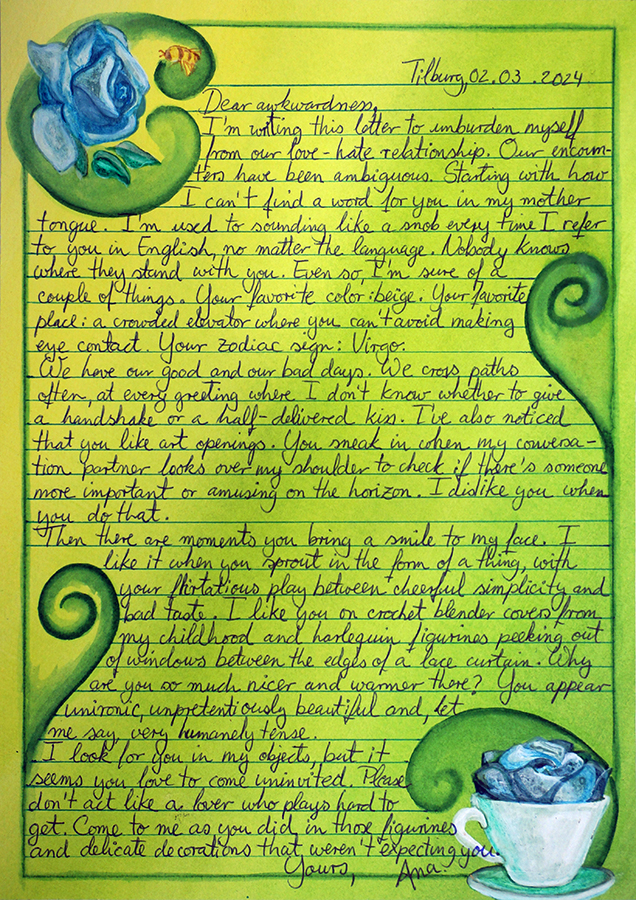 Tilburg, 02.03.2024
Dear awkwardness,
I'm writing this letter to unburden myself
from our love-hate relationship. Our encoun-
ters have been ambiguous. Starting with how
I can't find a word for you in my mother
tongue. I'm used to sounding like a snob every time I refer
to you in English, no matter the language. Nobody knows
where they stand with you. Even so, I'm sure of a
couple of things. Your favorite color: beige. Your favorite
place: a crowded elevator where you can't avoid making
eye contact. Your zodiac sign: Virgo.
We have our good and our bad days. We cross paths
often, at every greeting where I don't know whether to give
a handshake or a half-delivered kiss. I've also noticed
that you like art openings. You sneak in when my conversa-
tion partner looks over my shoulder to check if there's someone
more important or amusing on the horizon. I dislike you when
you do that.
Then there are moments you bring a smile to my face. I
like it when you sprout in the form of a thing, with
your flirtatious play between cheerful simplicity and
bad taste. I like you on crochet blender covers from
my childhood and harlequin figurines peeking out
of windows between the edges of a lace curtain. Why
are you so much nicer and warmer there? You appear
unironic, unpretentiously beautiful and, let
me say, very humanely tense.
I look for you in my objects, but it
seems you love to come uninvited. Please
don't act like a lover who plays hard to
get. Come to me as you did in those figurines
and delicate decorations that weren't expecting you.
Yours, Ana.